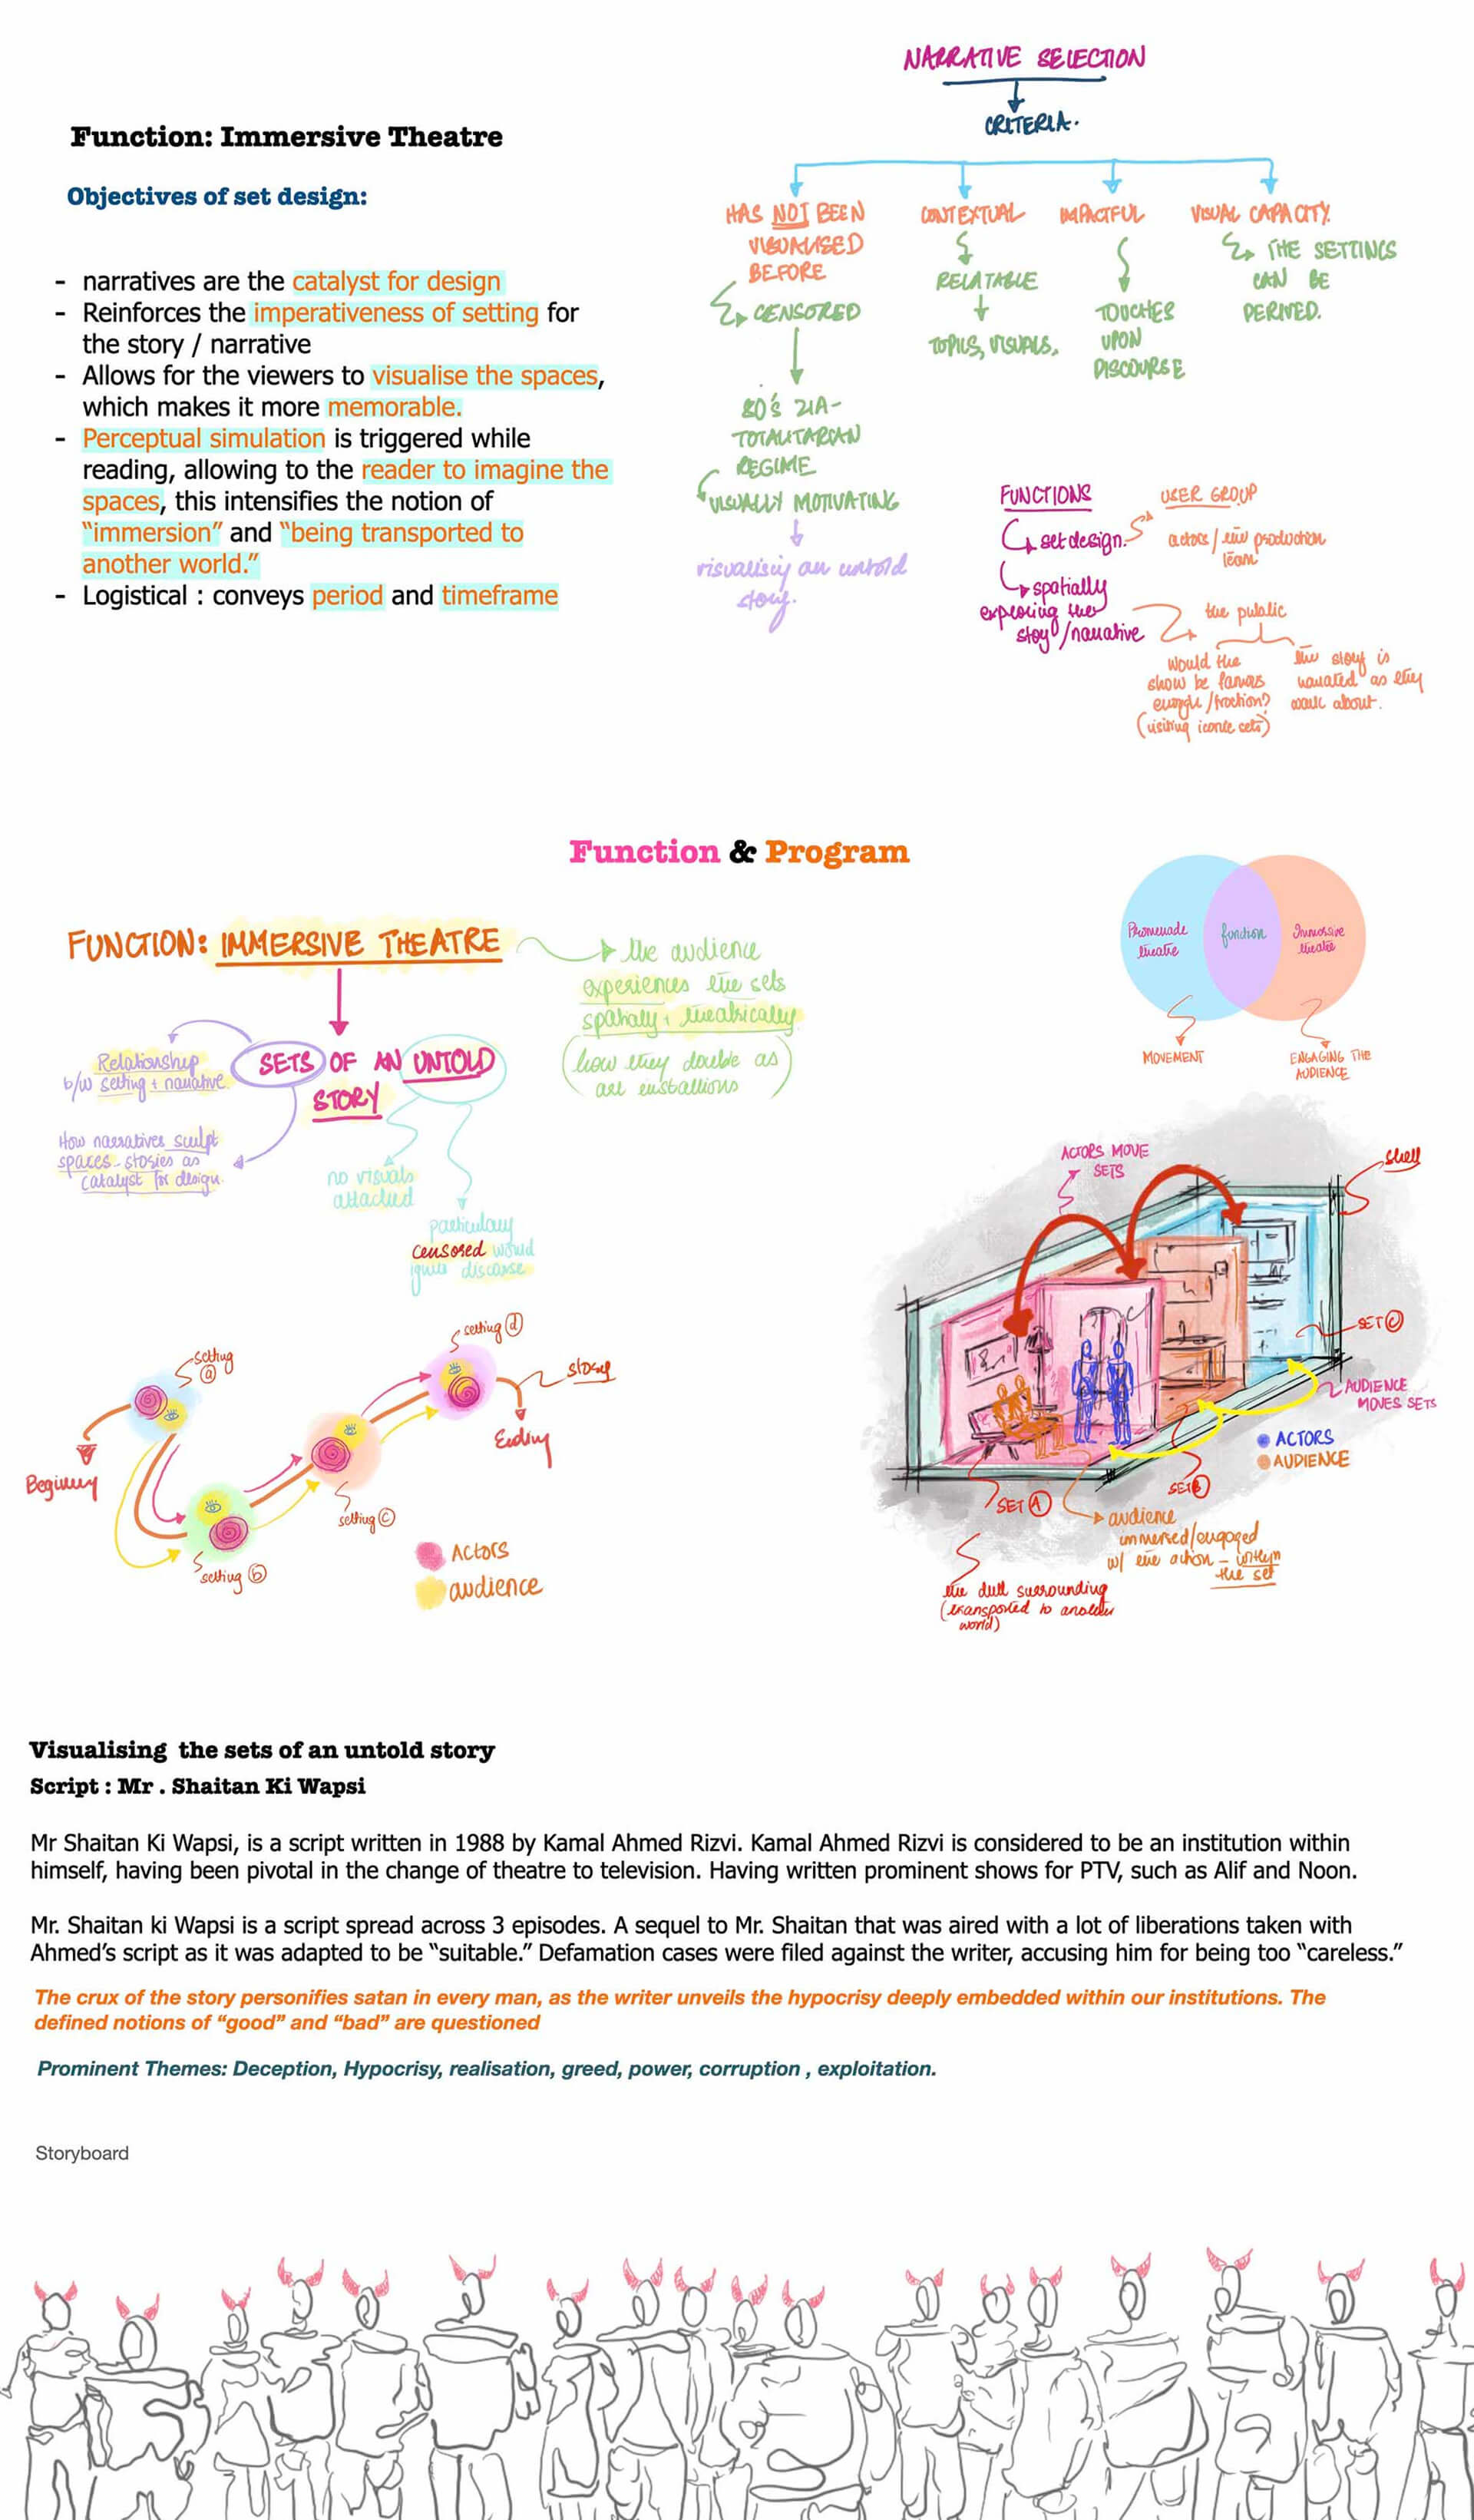 NARRATIVE SELECTION
CRITERIA.
HAS NOT BEEN
VISUALISED
BEFORE
CENSORED
80's ZIA-
TOTALITARIAN
REGIME
VISUALLY MOTIVATING
visualising an untold
story.
CONTEXTUAL
RELATABLE
TOPICS, VISUALS.
IMPACTFUL
TOUCHES
UPON
DISCOURSE
VISUAL CAPACITY.
THE SETTINGS
CAN BE
DERIVED.
Function: Immersive Theatre
Objectives of set design:
- narratives are the catalyst for design
- Reinforces the imperativeness of setting for
the story / narrative
- Allows for the viewers to visualise the spaces,
which makes it more memorable.
- Perceptual simulation is triggered while
reading, allowing to the reader to imagine the
spaces, this intensifies the notion of
“immersion” and “being transported to
another world.”
- Logistical : conveys period and timeframe
FUNCTIONS
set design.
spatially
exploring the
story/narrative
USER GROUP
actors / the production
team
the public
would the
show be famous
enough /
(visiting iconic sets)
the story is
narrated as they
walk about.
Function & Program
FUNCTION: IMMERSIVE THEATRE
the audience
experiences the sets
spatially + theatrically
(how they double as
art installations)
SETS OF AN UNTOLD
STORY
Relationship
b/w setting + narrative
How narratives sculpt
spaces - stories as
catalyst for design.
no visuals
attached
particularly
censored would
ignite discourse
Promenade
theatre
function
Immersive
theatre
MOVEMENT
ENGAGING THE
AUDIENCE
setting a
setting b
setting c
setting d
story
Beginning
Ending
Actors
audience
ACTORS MOVE
SETS
shell
SET C
AUDIENCE
MOVES SETS
ACTORS
AUDIENCE
SET B
SET A
audience
immersed/engaged
w/ the action - within
the set
the dull surrounding
(transported to another
world)
Visualising the sets of an untold story
Script : Mr . Shaitan Ki Wapsi
Mr Shaitan Ki Wapsi, is a script written in 1988 by Kamal Ahmed Rizvi. Kamal Ahmed Rizvi is considered to be an institution within
himself, having been pivotal in the change of theatre to television. Having written prominent shows for PTV, such as Alif and Noon.
Mr. Shaitan ki Wapsi is a script spread across 3 episodes. A sequel to Mr. Shaitan that was aired with a lot of liberations taken with
Ahmed’s script as it was adapted to be “suitable.” Defamation cases were filed against the writer, accusing him for being too “careless.”
The crux of the story personifies satan in every man, as the writer unveils the hypocrisy deeply embedded within our institutions. The
defined notions of “good” and “bad” are questioned
Prominent Themes: Deception, Hypocrisy, realisation, greed, power, corruption , exploitation.
Storyboard